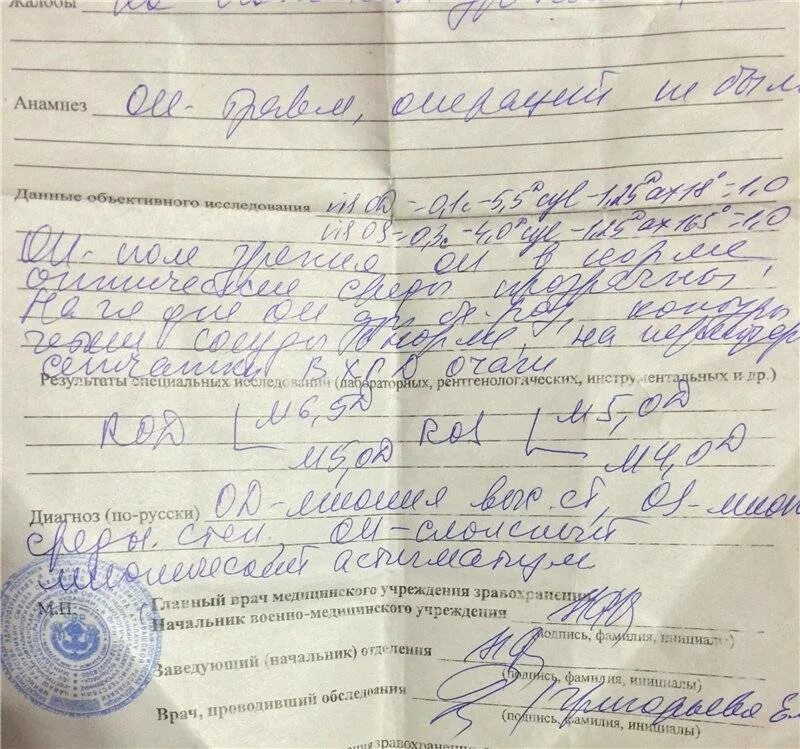 Жалобы на
Анамнез ОИ - травм, операций не было
Данные объективного исследования vis OD = 0,1 с -5,5ᴰ cyl -1,25ᴰ ax 18° = 1,0
vis OS = 0,3 с -4,0ᴰ cyl -1,25ᴰ ax 165° = 1,0
ОИ - поле зрения ОИ в норме,
оптические среды прозрачны,
На гл дне ОИ контуры
четкие сосуды в норме, на перифер
сетчатки ВХРД очаги
Результаты специальных исследований (лабораторных, рентгенологических, инструментальных и др.)
ROD M6,5D ROS M5,0D
M5,0D M4,0D
Диагноз (по-русски) OD - миопия выс. ст, OS - миоп
средн. степ. ОИ - сложный
миопический астигматизм
М.П. Главный врач медицинского учреждения зравохранения
Начальник военно-медицинского учреждения
(подпись, фамилия, инициалы)
Заведующий (начальник) отделения
(подпись, фамилия, инициалы)
Врач, проводивший обследования Григорьева Е.
(подпись, фамилия, инициалы)
зравохранения